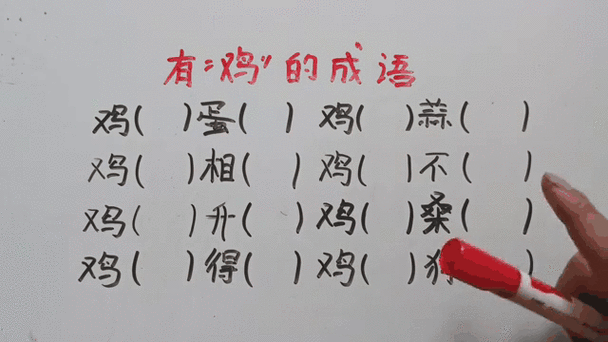 有“鸡”的成语
鸡( )蛋( ) 鸡( )蒜( )
鸡( )相( ) 鸡( )不( )
鸡( )升( ) 鸡( )桑( )
鸡( )得( ) 鸡( ) ( )